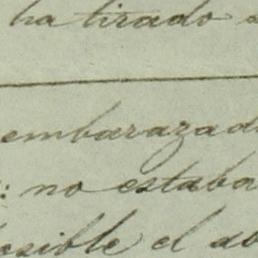 ha tirado
embarazad
: no estaba
osible el ab